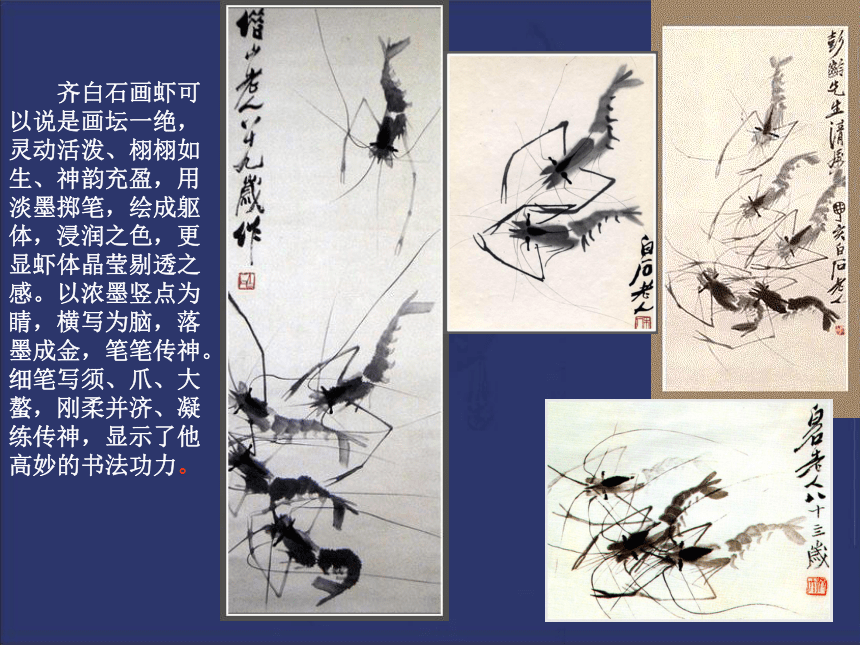 齐白石画虾可
以说是画坛一绝，
灵动活泼、栩栩如
生、神韵充盈，用
淡墨掷笔，绘成躯
体，浸润之色，更
显虾体晶莹剔透之
感。以浓墨竖点为
睛，横写为脑，落
墨成金，笔笔传神。
细笔写须、爪、大
螯，刚柔并济、凝
练传神，显示了他
高妙的书法功力。
老人八十九岁作
白石老人
彭龄先生清
白石老人
白石老人八十三岁